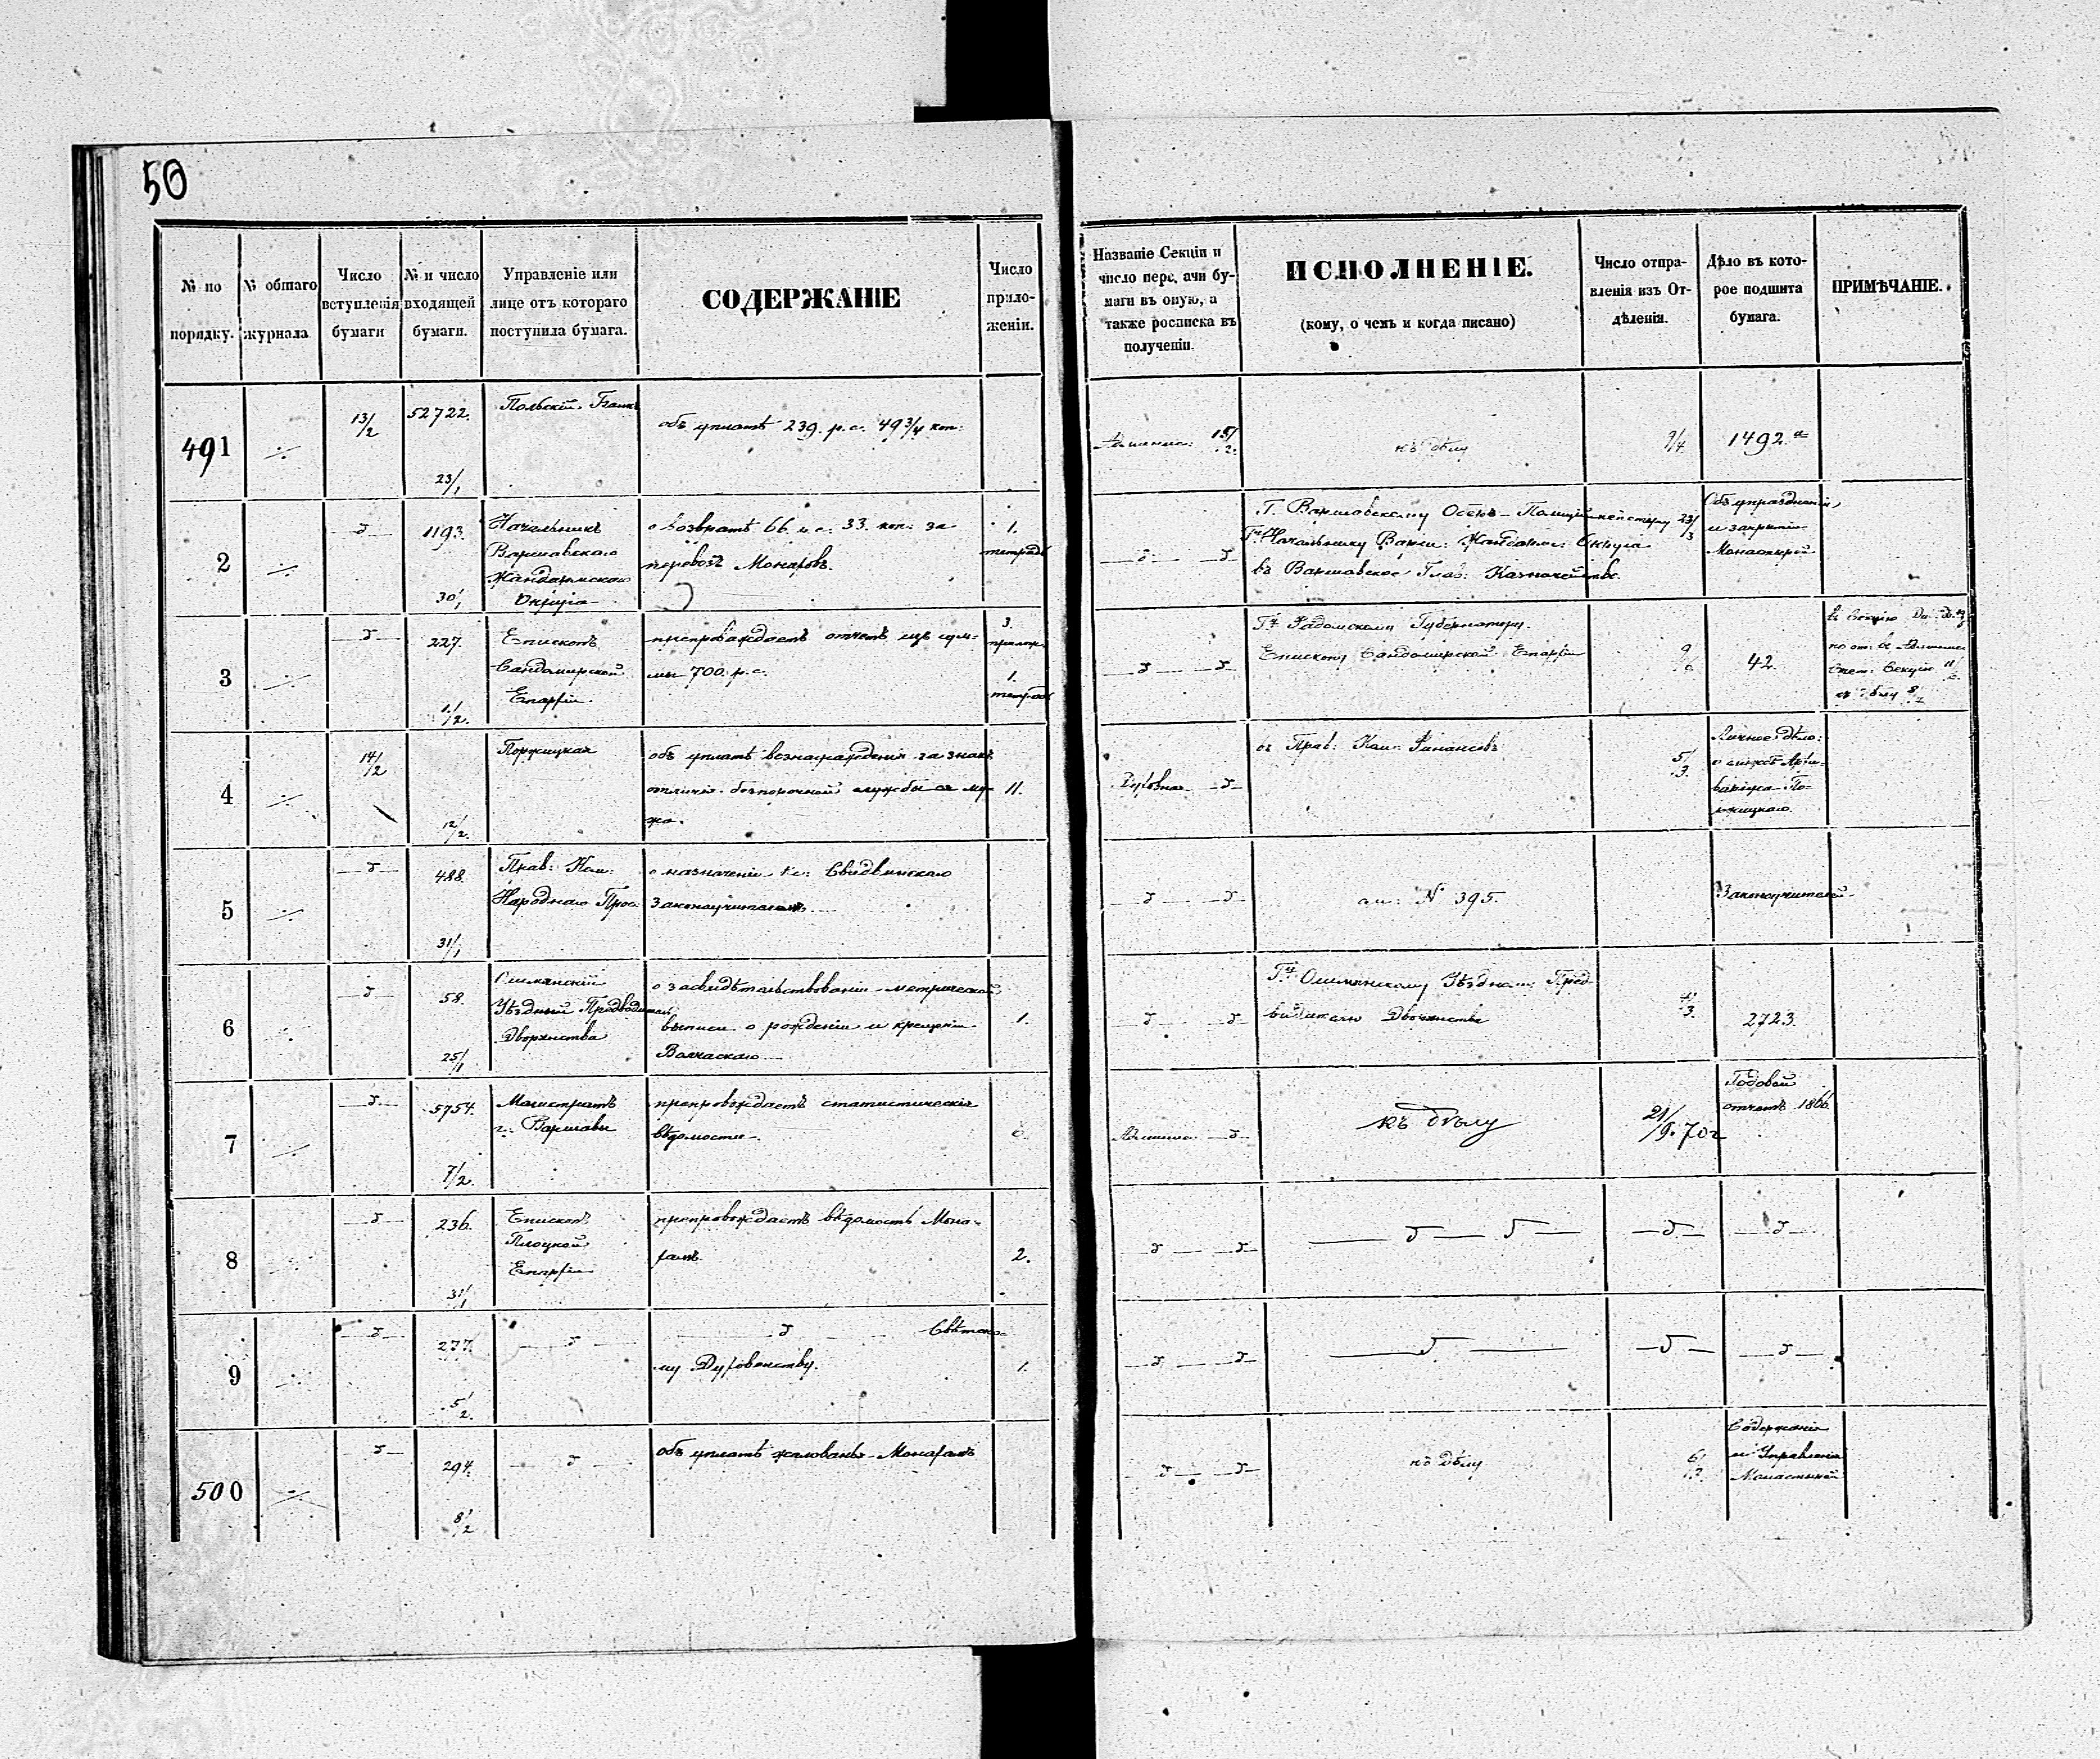 50
№ по порядку.
№ общаго журнала
Число вступленія бумаги
№ и число входящей бумаги.
Управленіе или лице отъ котораго поступила бумага.
СОДЕРЖАНІЕ
Число приложеніи.
Названіе Секціи и число перед ачи бумаги въ оную, а также росписка въ полученіи.
ИСПОЛНЕНІЕ.
(кому, о чемъ и когда писано)
Число отправленія изъ Отдѣленія.
Дѣло въ которое подшита бумага.
ПРИМѢЧАНІЕ.
491
13/2
52722.
23/1
Польскій Банкъ
объ уплатѣ 239. р. с. 49 3/4 коп:
15/2.
къ дѣлу
9/4.
1492.
2
1193.
30/1
Начальникъ
Варшавскаго
Жандармскаго
Округа
о возвратѣ 66. р. с. 33. коп: за
перевозъ Монаховъ.
1.
тетрадь
Г. Варшавскому Оберъ-Полиціймейстеру
Гну Начальнику Варш: Жандарм: Округа
въ Варшавское Глав: Казначейство.
23/3
Объ упраздненіи
и закрытіи
Монастырей
3
227.
1/2.
Епископъ
Сандомирской
Епархіи.
препровождаетъ отчетъ изъ сум-
мы 700. р. с.
3.
1.
тетрадь
Гну Радомскому Губернатору.
Епископу Сандомирской Епархіи
9/6
42.
4
14/2
12/2.
Поржицкая
объ уплатѣ вознагражденія за знакъ
отличія безпорочной службы ея му-
жа.
11.
Духовная
въ Прав: Ком: Финансовъ
5/3.
Личное дѣло:
о службѣ Архи-
5
488.
31/1
Прав: Ком:
Народнаго Прос:
о назначеніи Кс: Свидвинскаго
Законоучителемъ
№ 395.
Законоучителей
6
58.
25/1
Ошмянскій
Уѣздный Предводитель
Дворянства
о засвидѣтельствованіи метрической
выписи о рожденіи и крещеніи
1.
Гну Ошмянскому Уѣздному Пред-
водителю Дворянства
4/3.
2723.
7
5754.
7/2.
Магистратъ
г. Варшавы
препровождаетъ статистическія
вѣдомости.
къ дѣлу
21/9. 70 г
Годовой
отчетъ 1866
8
236.
31/1
Епископъ
Плоцкой
Епархіи
препровождаетъ вѣдомость Мона-
хамъ.
2.
9
277.
5/2.
Свѣтско-
му Духовенству.
1.
500
294.
8/2
Объ уплатѣ жалованья Монахамъ
къ дѣлу
Содержаніе
и Управленіе
Монастырей